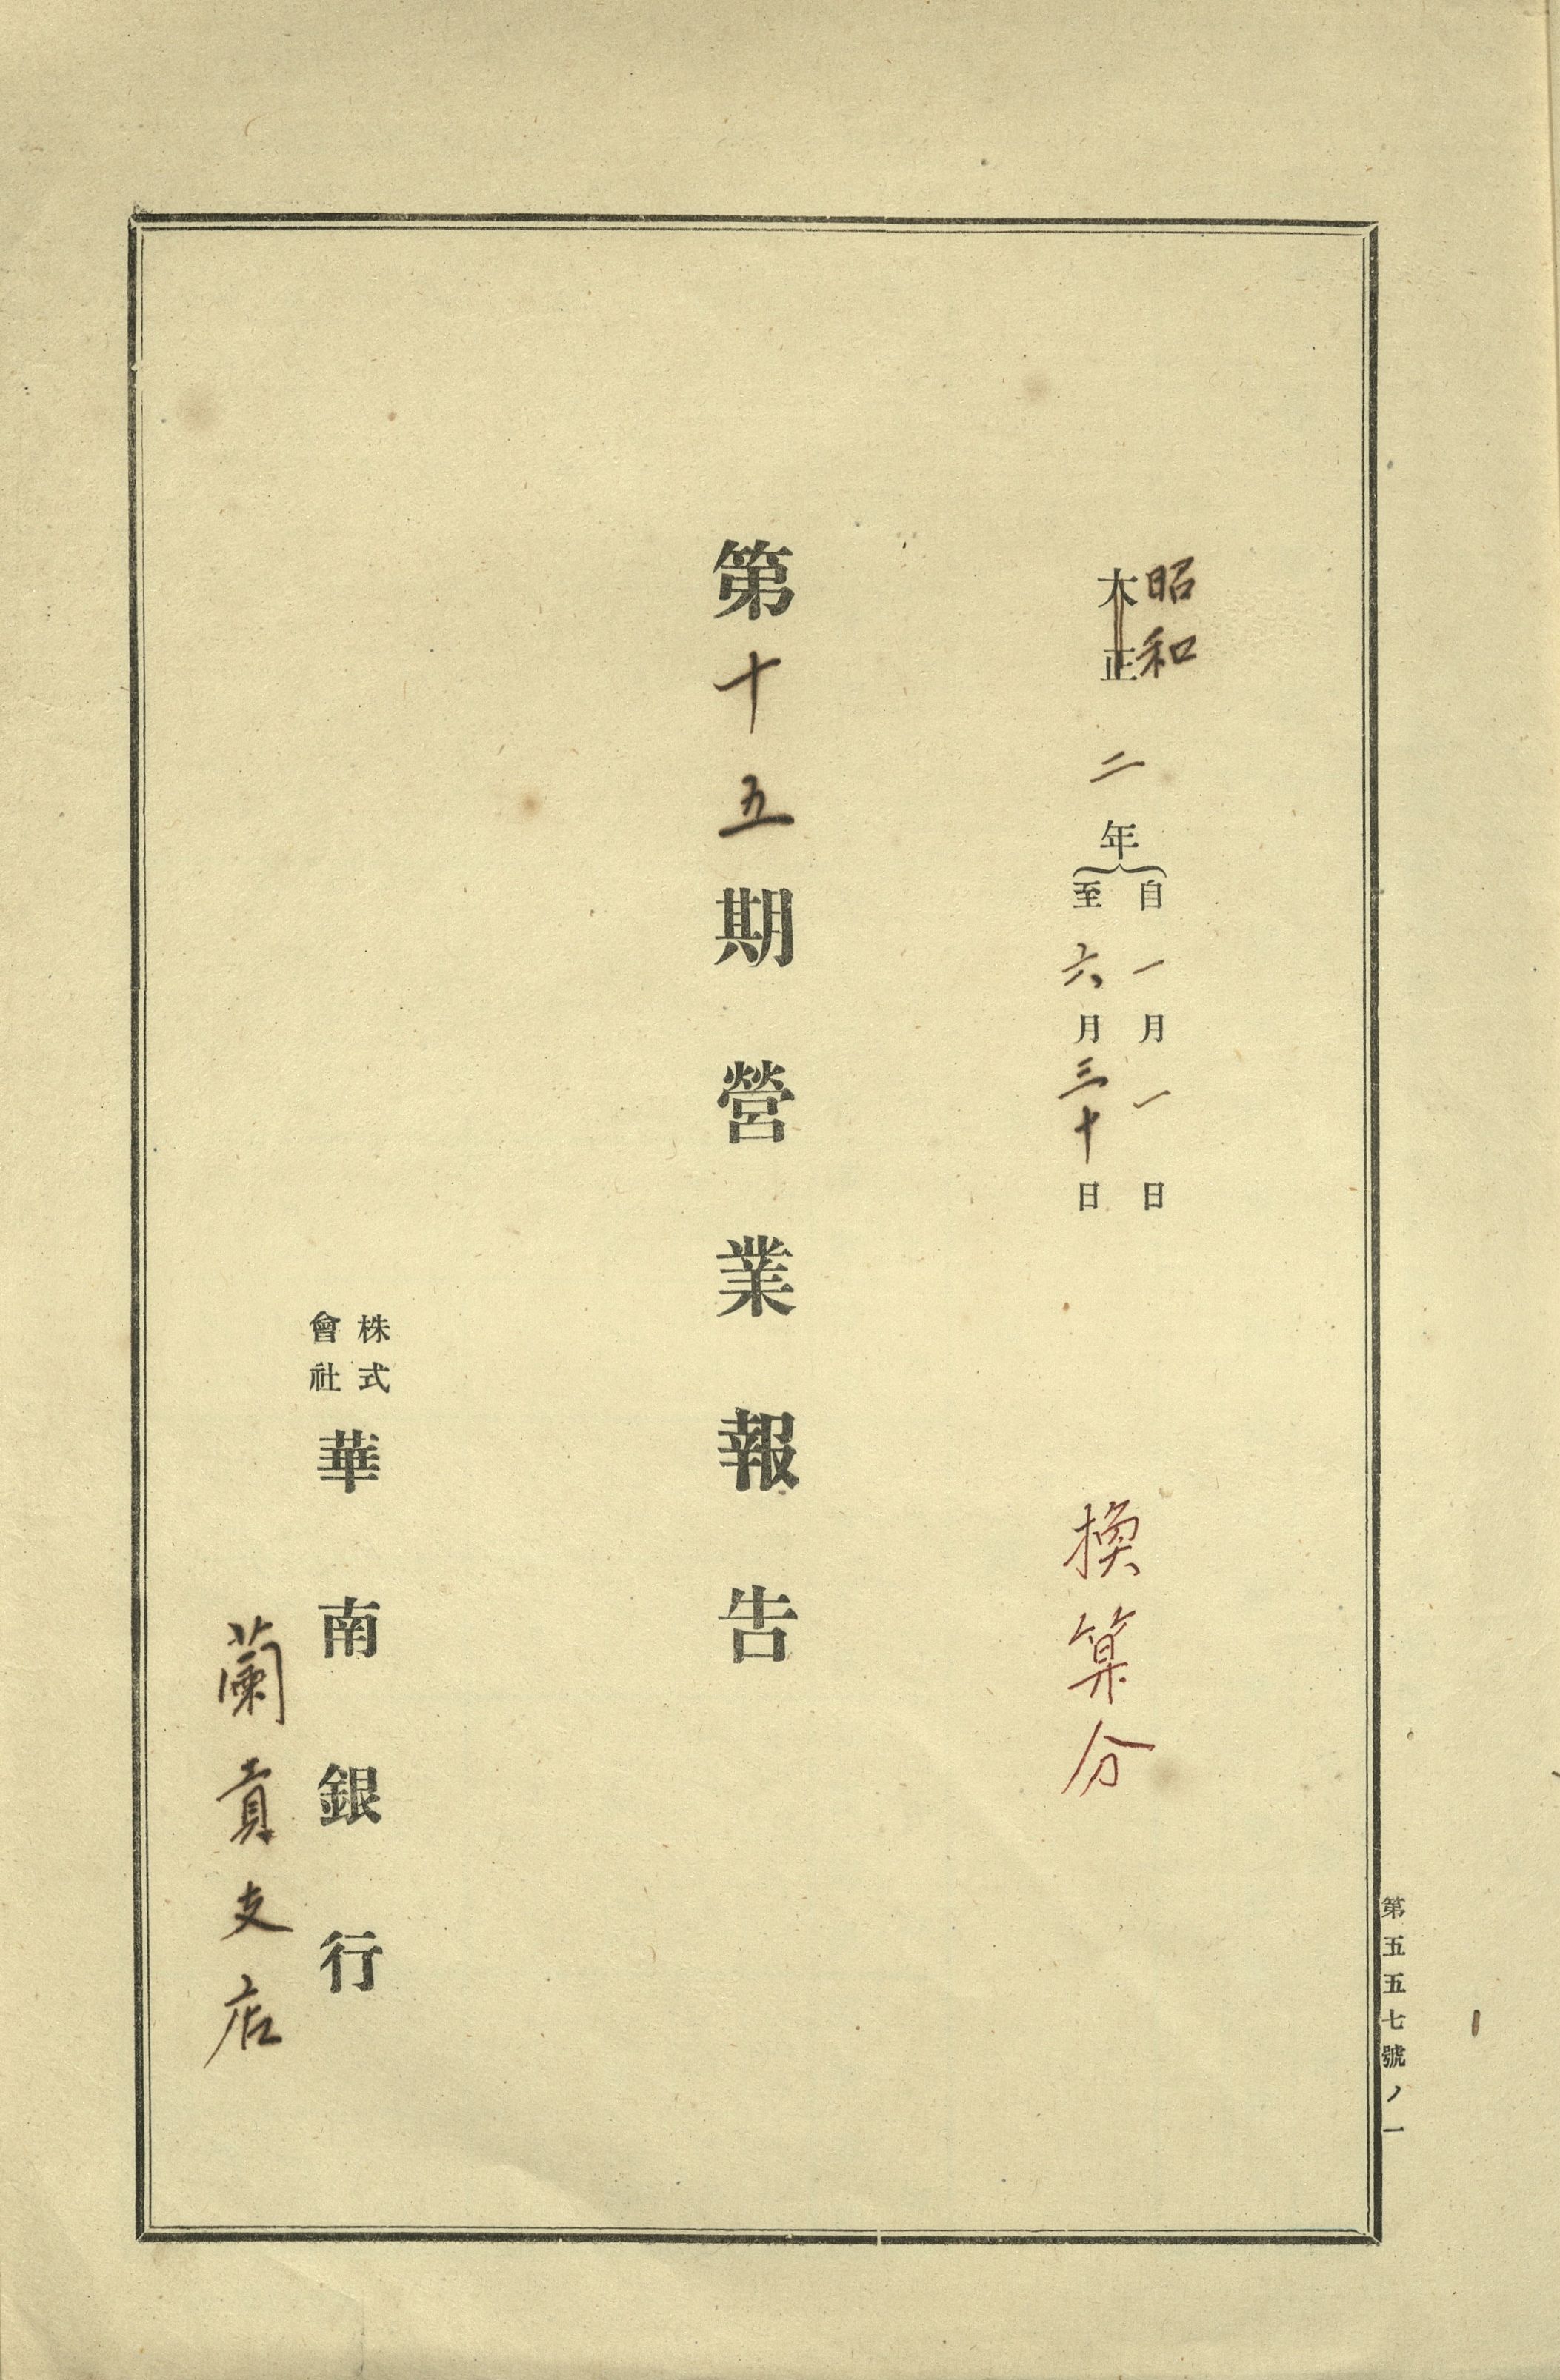 昭和
大正
二年
自一月一日
至六月三十日
換算分
第十五期營業報告
株式
會社
華南銀行
蘭貢支店
第五五七號ノ一